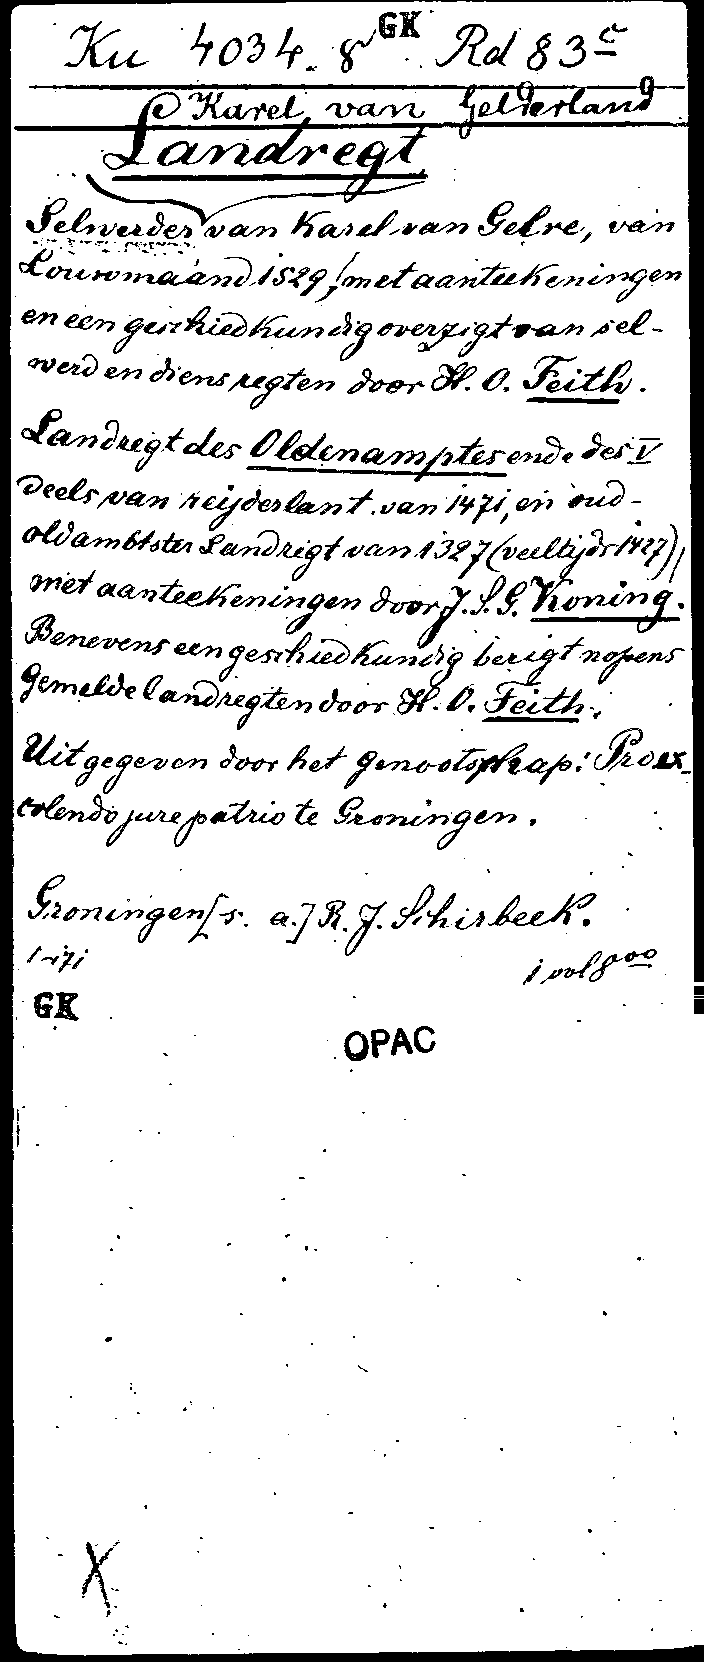 Ku 4034. 8 GK Rd 83c
Karel van Gelderland
Landregt
Selwerder van Karel van Gelre, van
Louwmaand 1529, met aanteekeningen
en een geschiedkundig overzigt van sel-
werd en diens regten door H. O. Feith.
Landregt des Oldenamptes ende des V
deels van reijderlant van 1471, en oud-
oldambtster Landrigt van 1327 (veeltijds 1427),
met aanteekeningen door J. S. G. Koning.
Benevens een geschiedkundig berigt nopens
gemelde landregten door H. O. Feith.
Uitgegeven door het genootschap: Pro ex-
colendo jure patrio te Groningen.
Groningen [s. a.] R. J. Schirbeek.
1 vol 8oo
GK
OPAC
X